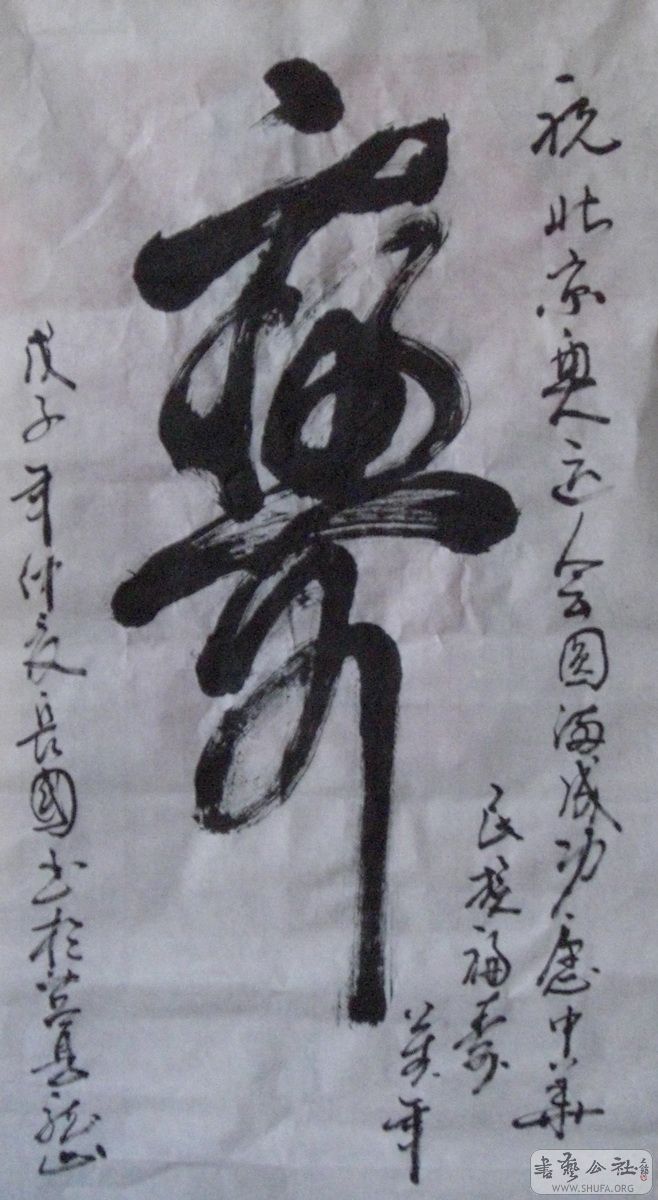 祝北京奥运会圆满成功愿中华
民族福寿
万年
戊子年仲夏長國书於莒县龙山
書藝公社
WWW.SHUFA.ORG